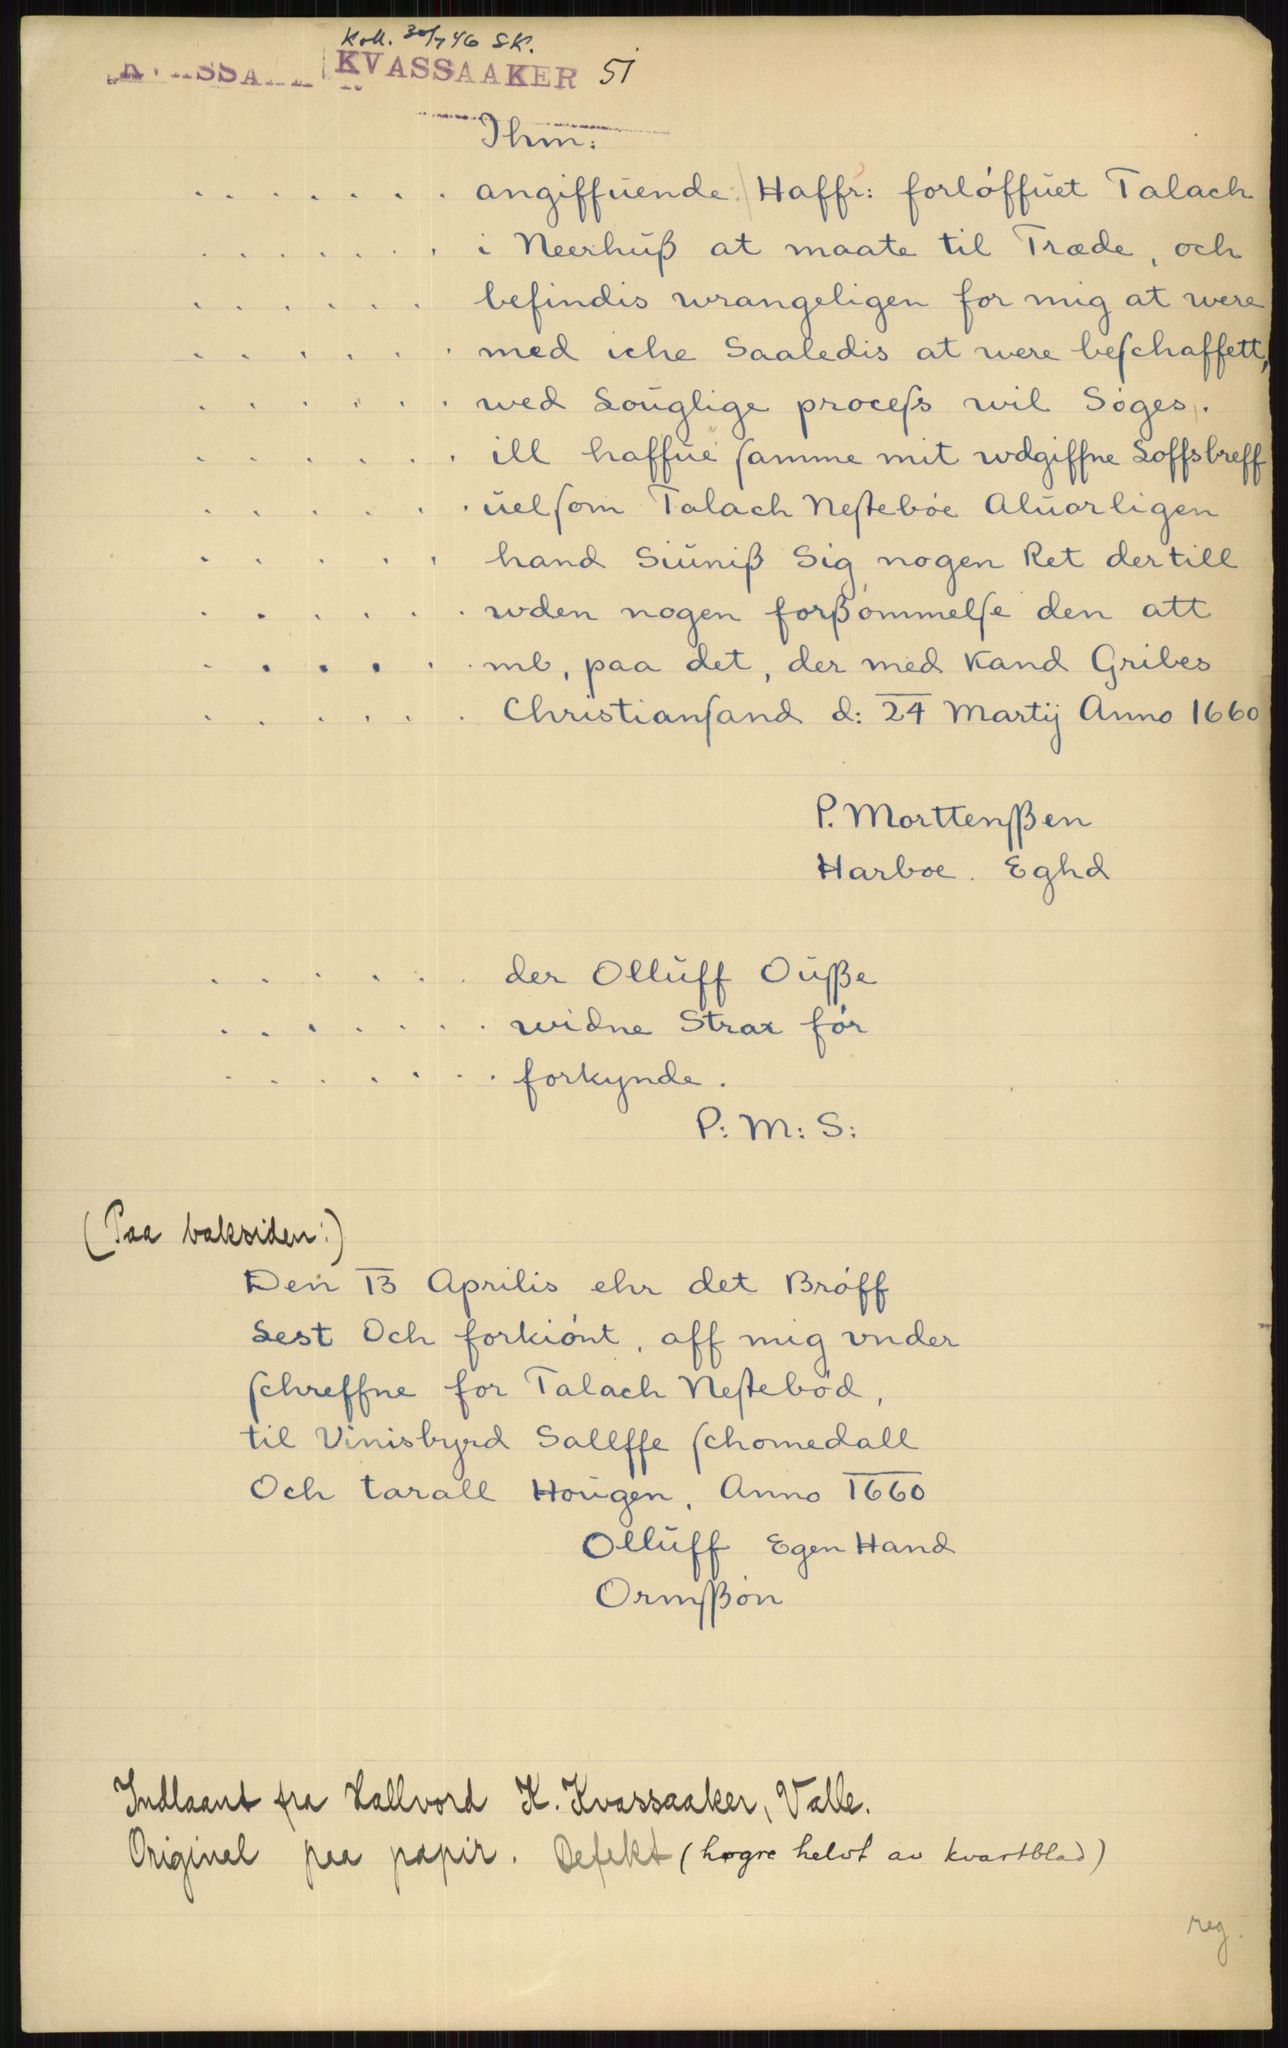 Koll. 30/7 46 SK.
KVASSAAKER 51
Ihm:
. . . . . . . angiffuende: Haffr: forlóffuet Talach
. . . . . . . i Neerhuß at maate til Træde, och
. . . . . . befindis wrangeligen for mig at were
. . . . . . . med iche Saaledis at were beſchaffett,
. . . . . . . wed Louglige proceſs wil Søges.
. . . . . . . ill haffue ſamme mit wdgiffne Loffsbreff
. . . . . . . uelſom Talach Neſtebóe Aluorligen
. . . . . . hand Siuniß Sig nogen Ret dertill
. . . . . . . wden nogen forßómmelſe den att
. . . . . . . mb, paa det, der med Kand Gribes
. . . . . . . Christianſand d: 24 Martij Anno 1660
P. Morttenſßen
Harboe. Eghd
. . . . . . der Olluff Oußße
. . . . . . . widne Strax fór
. . . . . . . forkynde.
P: M: S:
(Paa baksiden:)
Den 13 Aprilis ehr det Bróff
Lest Och forkiónt, aff mig vnder
ſchreffne for Talach Neſtebód,
til Vinisbyrd Sallffe ſchomedall
Och tarall Hougen, Anno 1660
Olluff Egen Hand
Ormſßón
Indlaant fra Hallvord K. Kvassaaker, Valle.
Original paa papir. Defekt (høgre helvt av kvartblad)
reg.